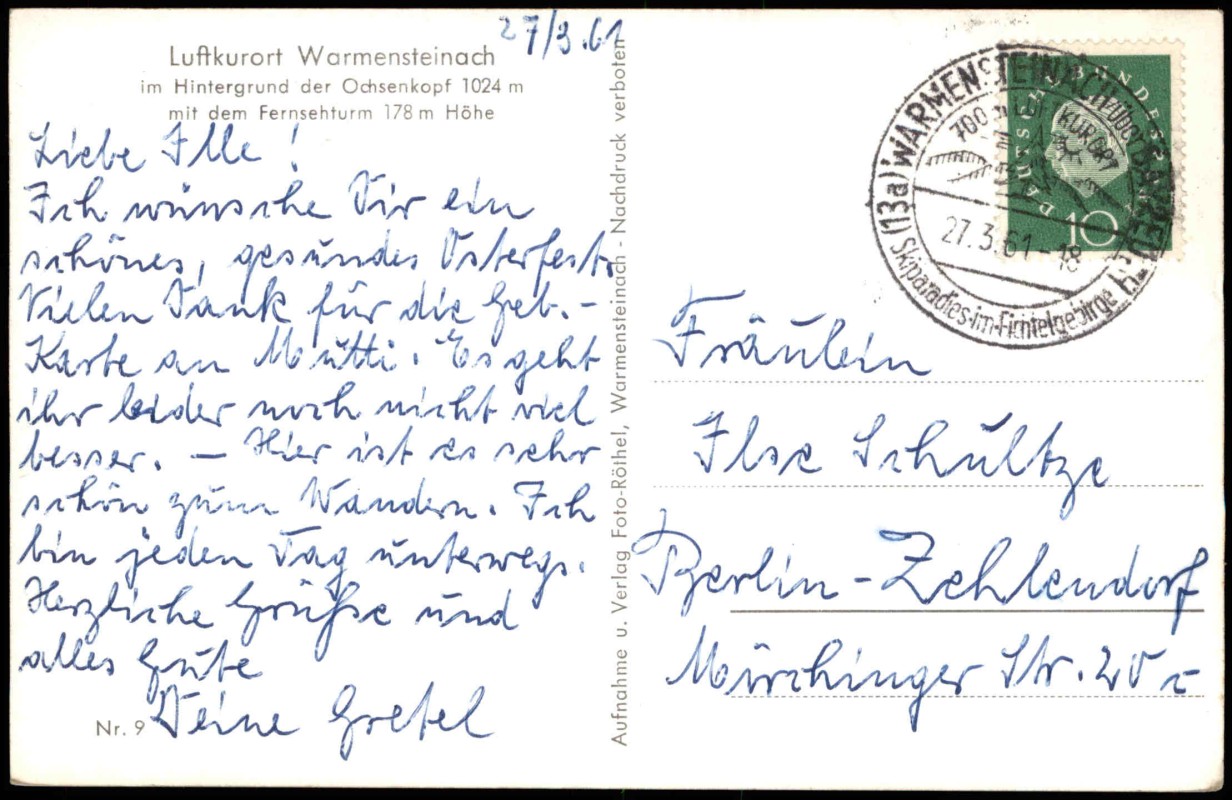 27/3.61
Luftkurort Warmensteinach
im Hintergrund der Ochsenkopf 1024 m
mit dem Fernsehturm 178 m Höhe
Liebe Ille!
Ich wünsche Dir ein
schönes, gesundes Osterfest.
Vielen Dank für die Geb.-
Karte an Mutti. Es geht
ihr leider noch nicht viel
besser. – Hier ist es sehr
schön zum Wandern. Ich
bin jeden Tag unterwegs.
Herzliche Grüße und
alles Gute
Deine Gretel
Nr. 9
Aufnahme u. Verlag Foto-Röthel, Warmensteinach - Nachdruck verboten
(13a) WARMENSTEINACH ÜBER BAYREUTH
700 m KURORT
27.3.61-18
Skiparadies-im-Fichtelgebirge
DEUTSCHE BUNDESPOST
10
Fräulein
Ilse Schultze
Berlin-Zehlendorf
Str. 20